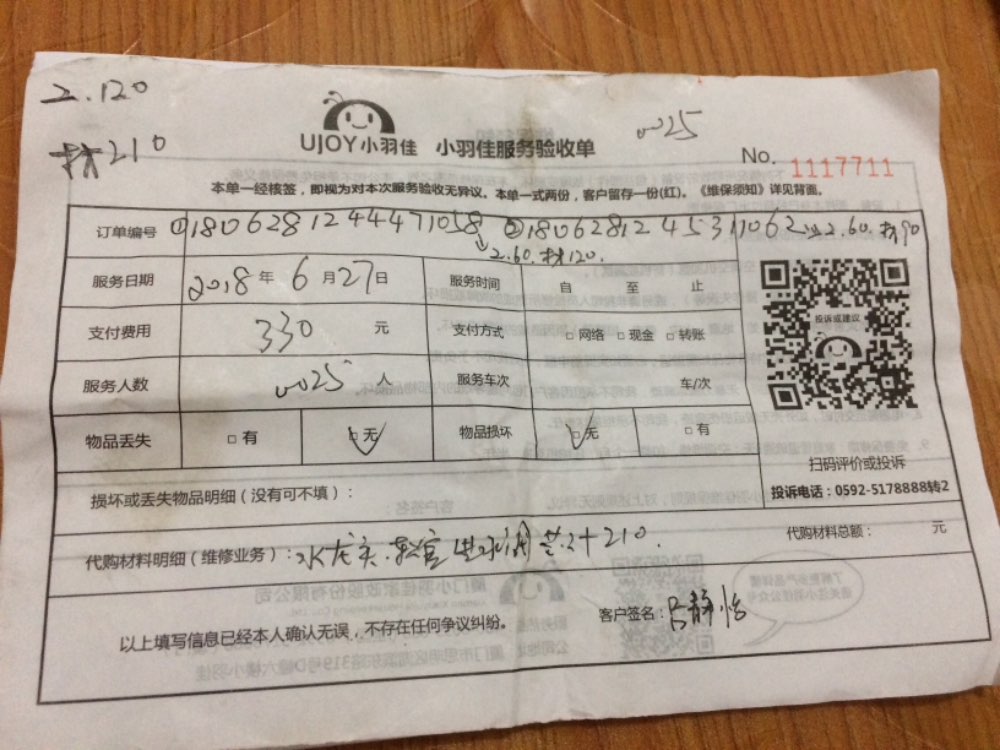 工.120
材210
UJOY小羽佳 小羽佳服务验收单
0025
No. 1117711
本单一经核签，即视为对本次服务验收无异议。本单一式两份，客户留存一份(红)。《维保须知》详见背面。
订单编号 ①1806281244471058 ②1806281245311062 工2.60.材90
2.60.材120.
服务日期 2018年 6月27日 服务时间 自 至 止
支付费用 330 元 支付方式 □网络 □现金 □转账
服务人数 0025 人 服务车次 车/次
物品丢失 □有 □无 物品损坏 □无 □有
投诉或建议
扫码评价或投诉
投诉电话：0592-5178888转2
损坏或丢失物品明细（没有可不填）：
代购材料明细（维修业务）：水龙头. 软管 计210.
代购材料总额： 元
以上填写信息已经本人确认无误，不存在任何争议纠纷。
客户签名：吕静怡